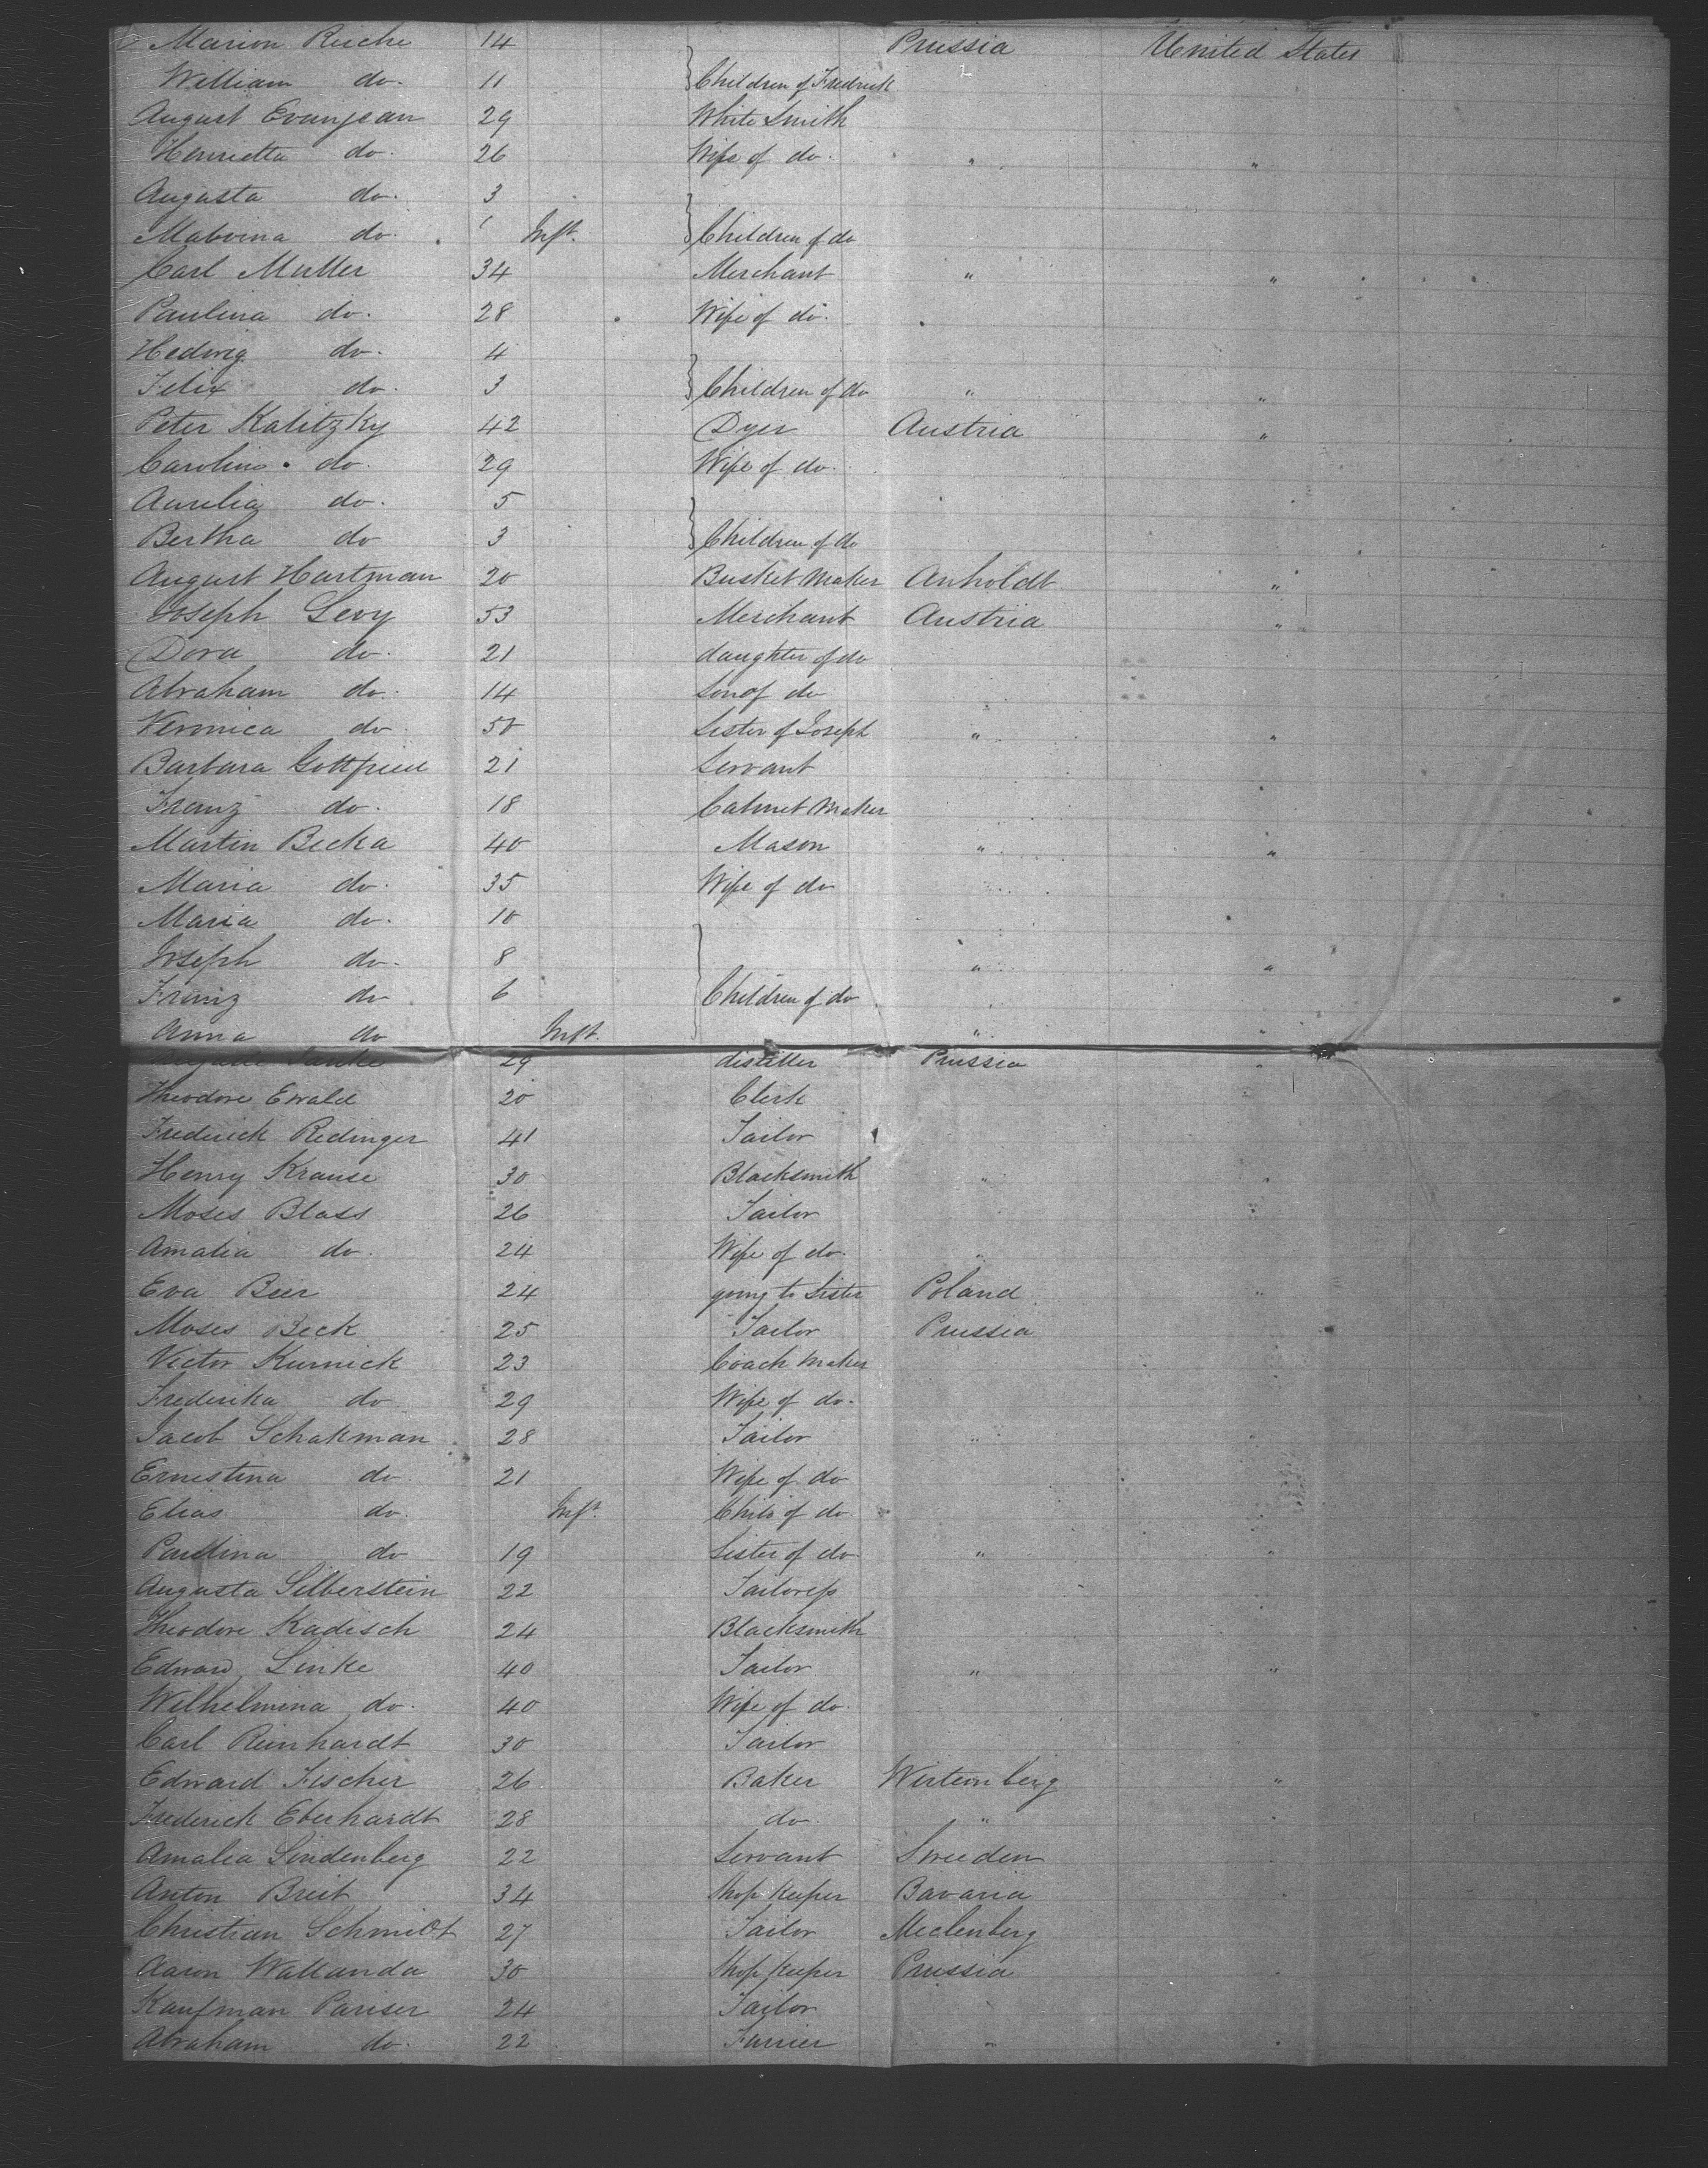 Marion Reiche 14 Prussia United States
William do. 11 Children of Fredrick
August Evanjean 29 White Smith
Henrietta do. 26 Wife of do. " "
Augusta do. 3
Malvina do. Inft. Children of do
Carl Muller 34 Merchant " "
Paulina do. 28 Wife of do.
Hedwig do. 4
Felix do. 3 Children of do " "
Peter Kalitzky 42 Dyer Austria "
Carolina do. 29 Wife of do.
Aurelia do. 5
Bertha do 3 Children of do
August Hartman 20 Basket Maker Anholdt "
Joseph Levy 53 Merchant Austria "
Dora do. 21 daughter of do
Abraham do. 14 Son of do "
Veronica do 50 Sister of Joseph " "
Barbara Gottfried 21 Servant
Franz do. 18 Cabinet Maker
Martin Becka 40 Mason " "
Maria do. 35 Wife of do
Maria do. 10
Joseph do. 8 " "
Franz do 6 Children of do
Anna do Inft. " "
29 distiller Prussia "
Theodore Ewald 20 Clerk
Frederick Redinger 41 Tailor
Henry Krause 30 Blacksmith " "
Moses Blass 26 Tailor
Amalia do. 24 Wife of do. "
Eva Bier 24 going to Sister Poland "
Moses Beck 25 Tailor Prussia
Victor Kurnick 23 Coach Maker
Frederika do 29 Wife of do.
Jacob Schakman 28 Tailor " "
Ernestina do 21 Wife of do
Elias do. Inft. Child of do
Paulina do 19 Sister of do " "
Augusta Silberstein 22 Tailoress
Theodore Kadisch 24 Blacksmith
Edward Linke 40 Tailor " "
Wilhelmina do. 40 Wife of do.
Carl Reinhardt 30 Tailor
Edward Fischer 26 Baker Wirtemberg "
Frederick Eberhardt 28 do. " "
Amalia Lindenberg 22 Servant Sweeden
Anton Breit 34 Shop Keeper Bavaria "
Christian Schmidt 27 Tailor Meclenberg
Aaron Wallanda 30 Shop Keeper Prussia
Kaufman Pariser 24 Tailor
Abraham do. 22 Farrier " "